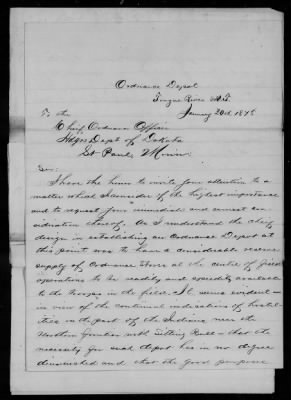 Ordnance Depot
Tongue River M.T.
January 22d 1878
To the
Chief Ordnance Officer
Hdqrs Dept of Dakota
St Paul, Minn.
Sir:
I have the honor to invite your attention to a
matter which I consider of the highest importance
and to request your immediate and earnest con-
sideration thereof. As I understand the chief
design in establishing an Ordnance Depot at
this point was to have a considerable reserve
supply of Ordnance Stores at the centre of field
operations to be readily and speedily available
to the troops in the field. It seems evident -
in view of the continued indications of hostili-
ties on the part of the Indians near the
Northern frontier with Sitting Bull - that the
necessity for such depot has in no degree
diminished and that the good purpose